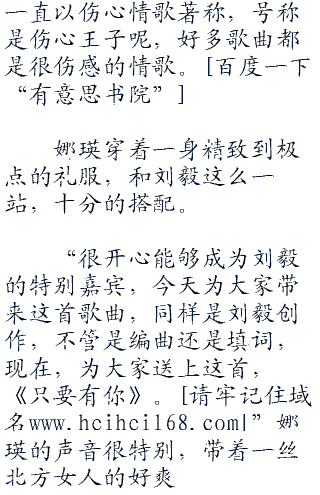 一直以伤心情歌著称，号称
是伤心王子呢，好多歌曲都
是很伤感的情歌。[百度一下
“有意思书院”]
娜瑛穿着一身精致到极
点的礼服，和刘毅这么一
站，十分的搭配。
“很开心能够成为刘毅
的特别嘉宾，今天为大家带
来这首歌曲，同样是刘毅创
作，不管是编曲还是填词，
现在，为大家送上这首，
《只要有你》。[请牢记住域
名www.hcihci168.com|”娜
瑛的声音很特别，带着一丝
北方女人的好爽